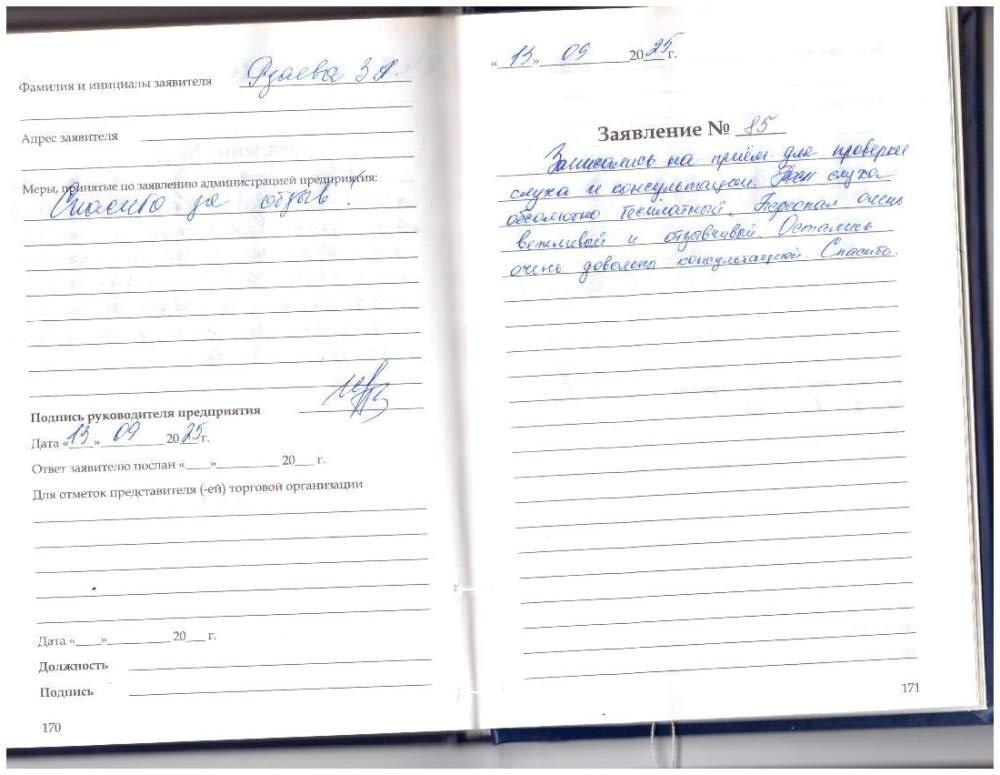 Фамилия и инициалы заявителя Дзаева З А.
Адрес заявителя
Меры, принятые по заявлению администрацией предприятия:
Спасибо за отзыв!
Подпись руководителя предприятия
Дата «13» 09 2025г.
Ответ заявителю послан «____»__________ 20___ г.
Для отметок представителя (-ей) торговой организации
Дата «____»__________ 20___ г.
Должность
Подпись
170
«13» 09 2025г.
Заявление № 85
Записались на приём для проверки
слуха и консультации. Тест слуха
абсолютно бесплатный. Персонал очень
вежливый и отзывчивый. Остались
очень довольны консультацией. Спасибо.
171